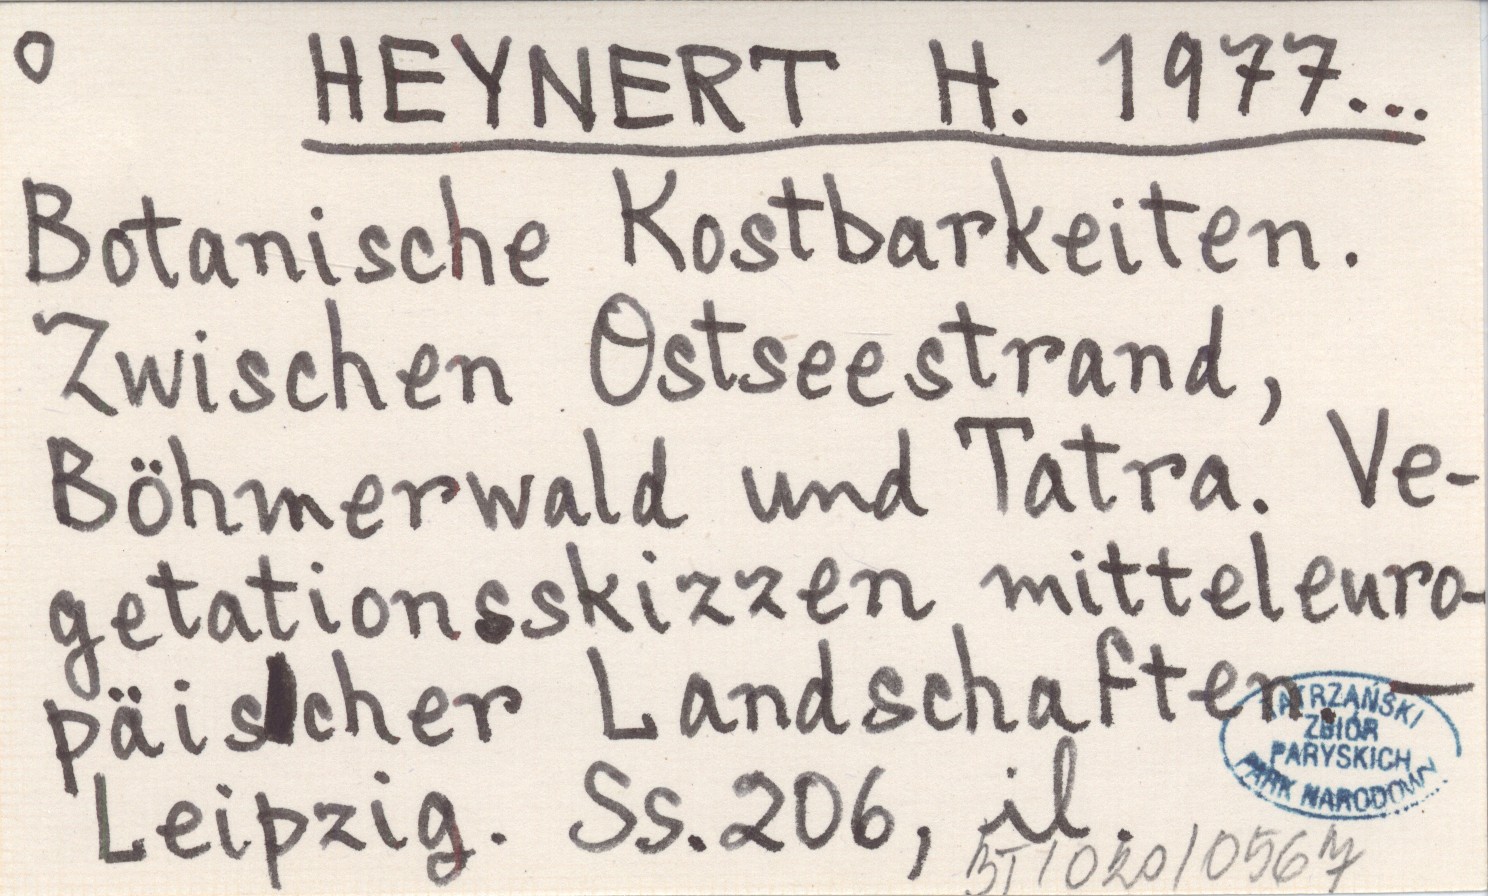 o HEYNERT H. 1977...
Botanische Kostbarkeiten.
Zwischen Ostseestrand,
Böhmerwald und Tatra. Ve-
getationsskizzen mitteleuro-
päischer Landschaften. —
TATRZAŃSKI
ZBIÓR
PARYSKICH
PARK NARODOWY
Leipzig. Ss. 206, il.
BT/020/0567